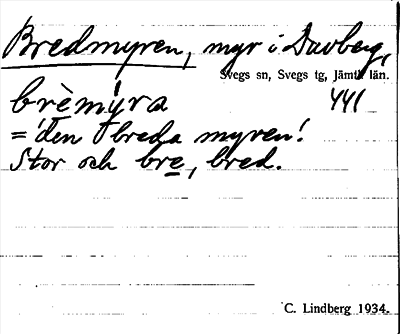 Bredmyren, myr i Duvberg,
Svegs sn, Svegs tg, Jämtl. län.
brèmýra 441
= 'den breda myren'.
Stor och bre, bred.
C. Lindberg 1934.